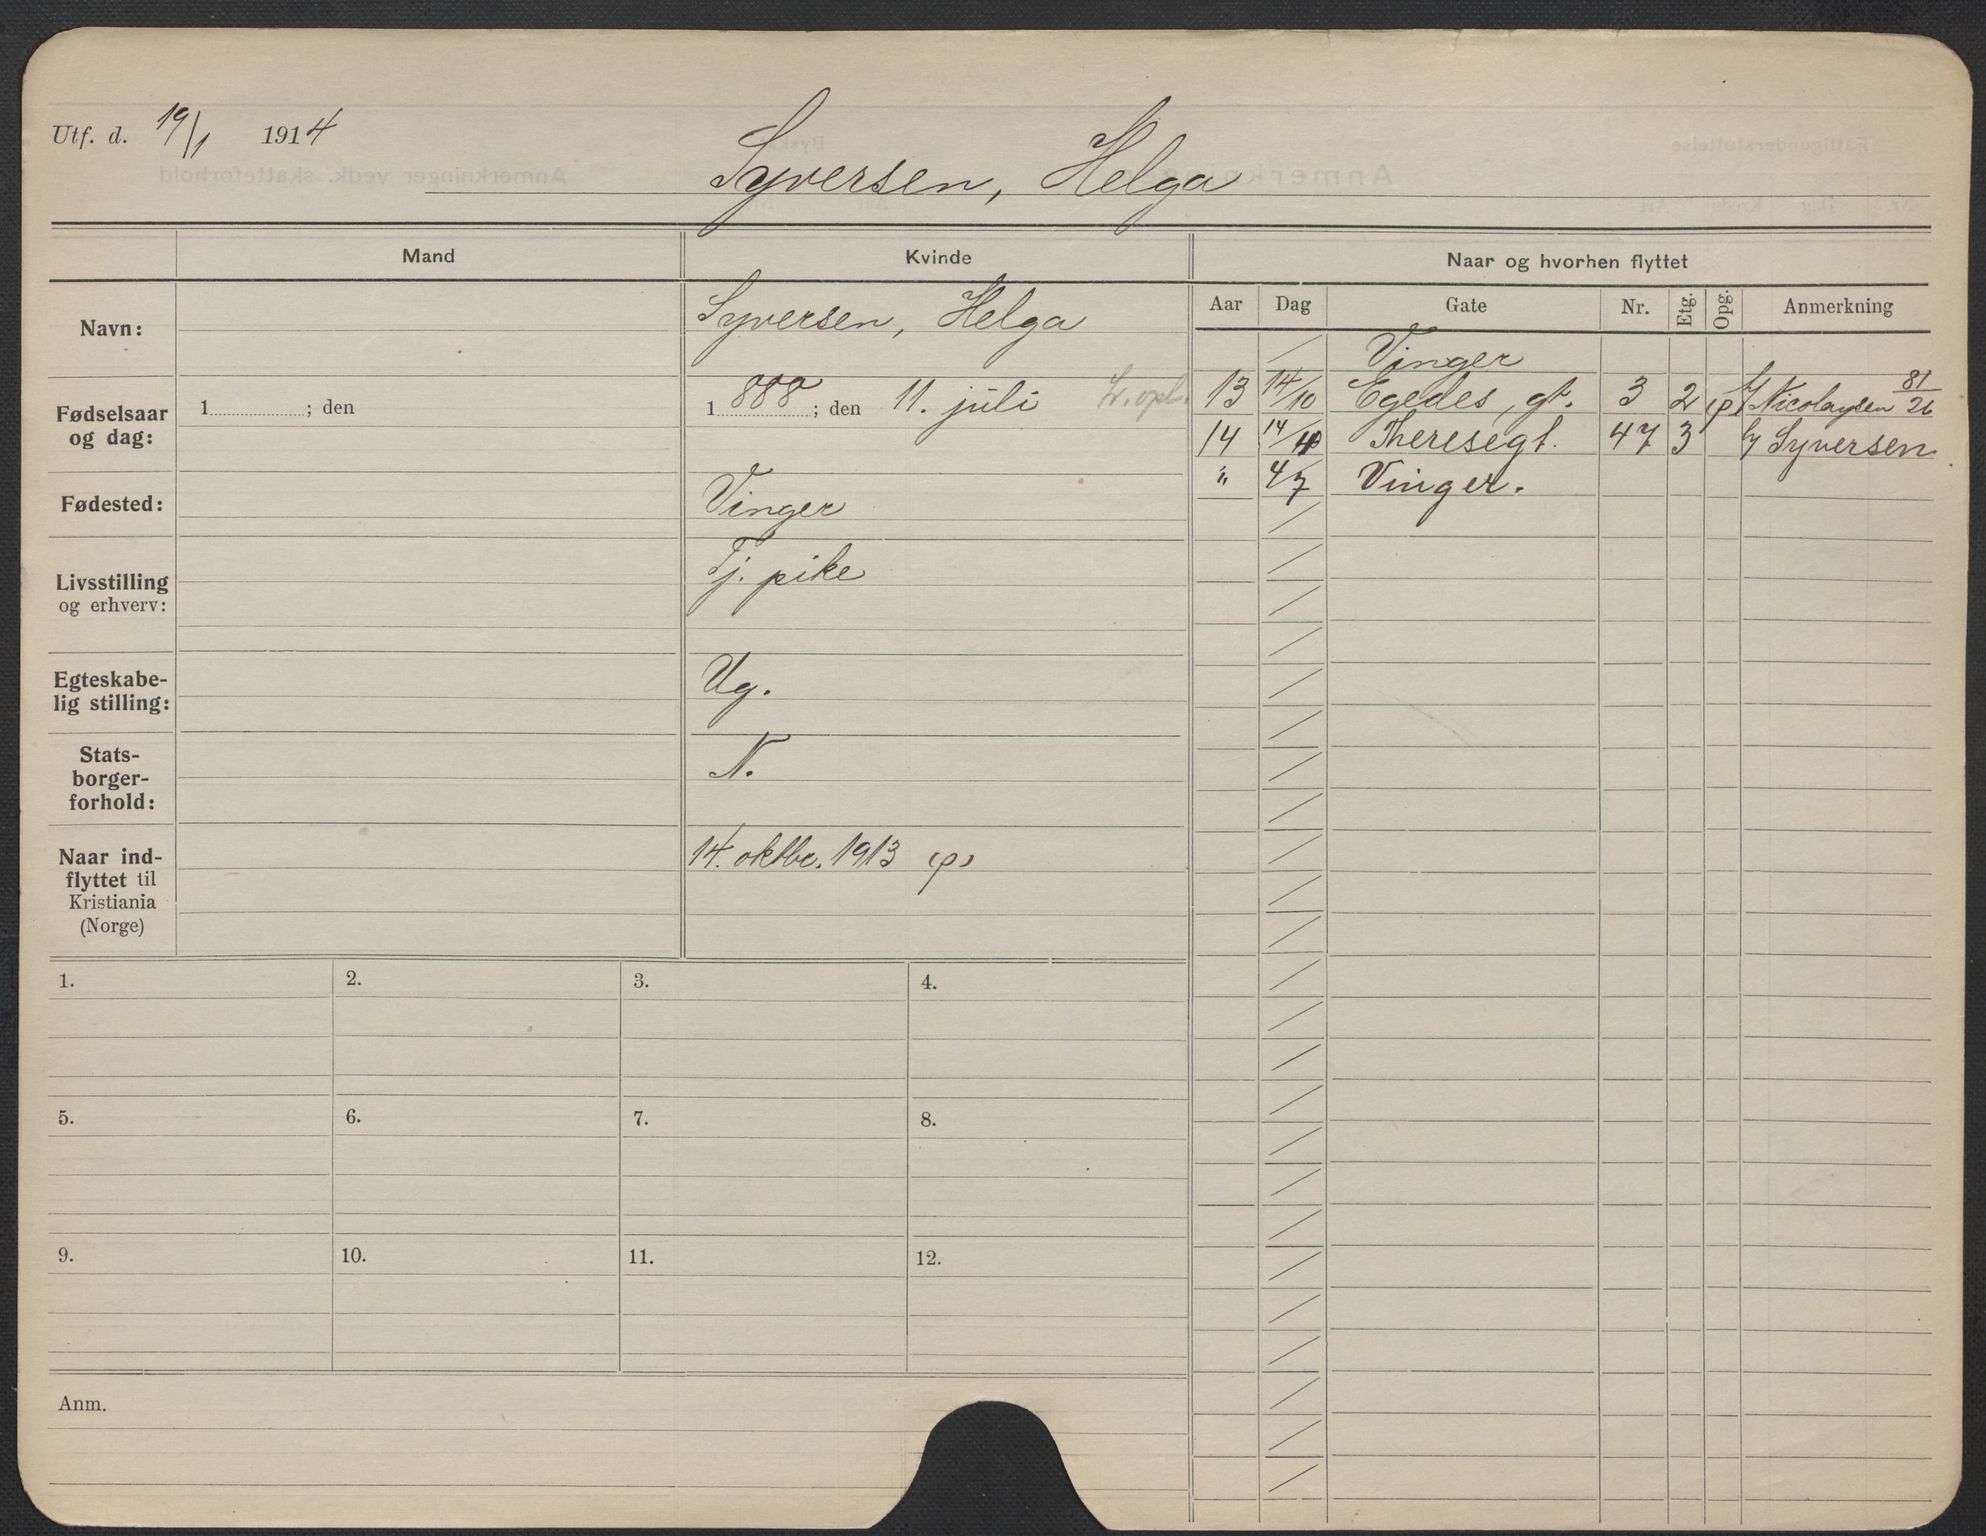 Utf. d. 19/1 1914
Syversen, Helga
Mand
Kvinde
Naar og hvorhen flyttet
Navn:
Syversen, Helga
Fødselsaar og dag:
1 ; den
1888 ; den 11. juli
Fødested:
Vinger
Livsstilling og erhverv:
Tj. pike
Egteskabe-
lig stilling:
Ug.
Stats-
borger-
forhold:
N.
Naar ind-
flyttet til
Kristiania
(Norge)
14. oktbr. 1913 (p)
Aar Dag Gate Nr. Etg. Opg. Anmerkning
/ Vinger
13 14/10 Egedes, gt. 3 2 (p) Nicolaysen 81/26
14 14/4 Theresegt. 47 3 Syversen
" 4/7 Vinger.
1. 2. 3. 4.
5. 6. 7. 8.
9. 10. 11. 12.
Anm.